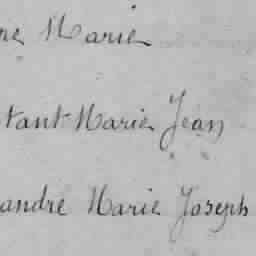 ne Marie
tant Marie Jean
andre Marie Joseph